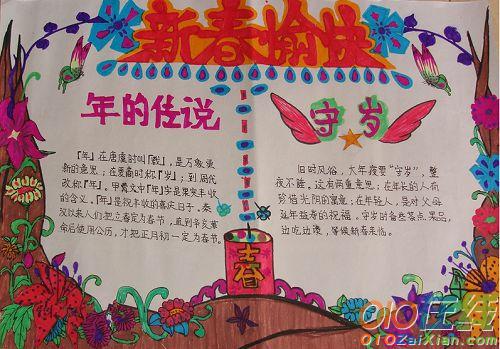 新春愉快
年的传说
「年」在唐虞时叫「载」,是万象更
新的意思;在夏商时称「岁」;到周代
改称「年」。甲骨文中「年」字是果实丰收
的含义。「年」是祝丰收的喜庆日子。秦
汉以来人们把立春定为春节,直到辛亥革
命后使用公历,才把正月初一定为春节。
守岁
旧时风俗,大年夜要“守岁”,整
夜不睡。这有两重意思;在年长的人有
珍惜光阴的寓意;在年轻人,是对父母
延年益寿的祝福。守岁时备些茶点果品,
边吃边读,等候新春来临。
春
QIO在线
QIOZaiXian.com